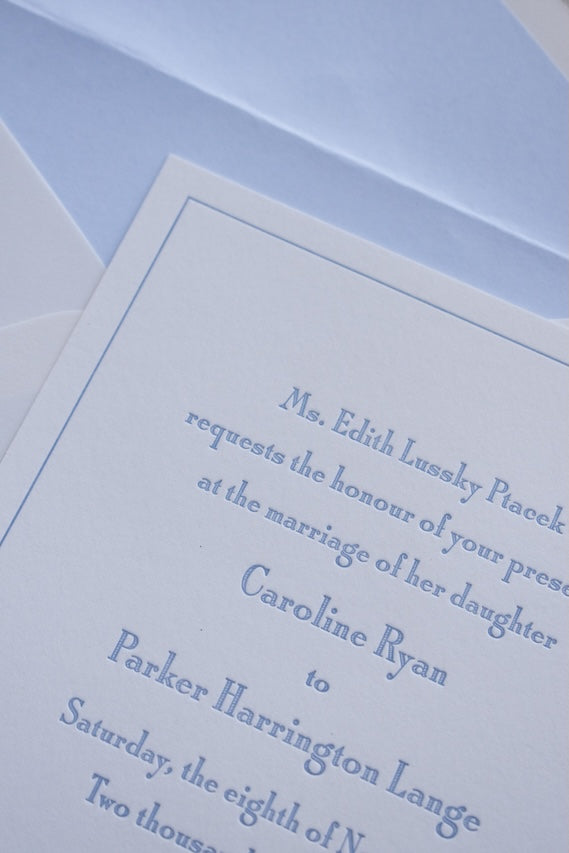 Ms. Edith Lussky Ptacek
requests the honour of your prese
at the marriage of her daughter
Caroline Ryan
to
Parker Harrington Lange
Saturday, the eighth of N
Two thousa